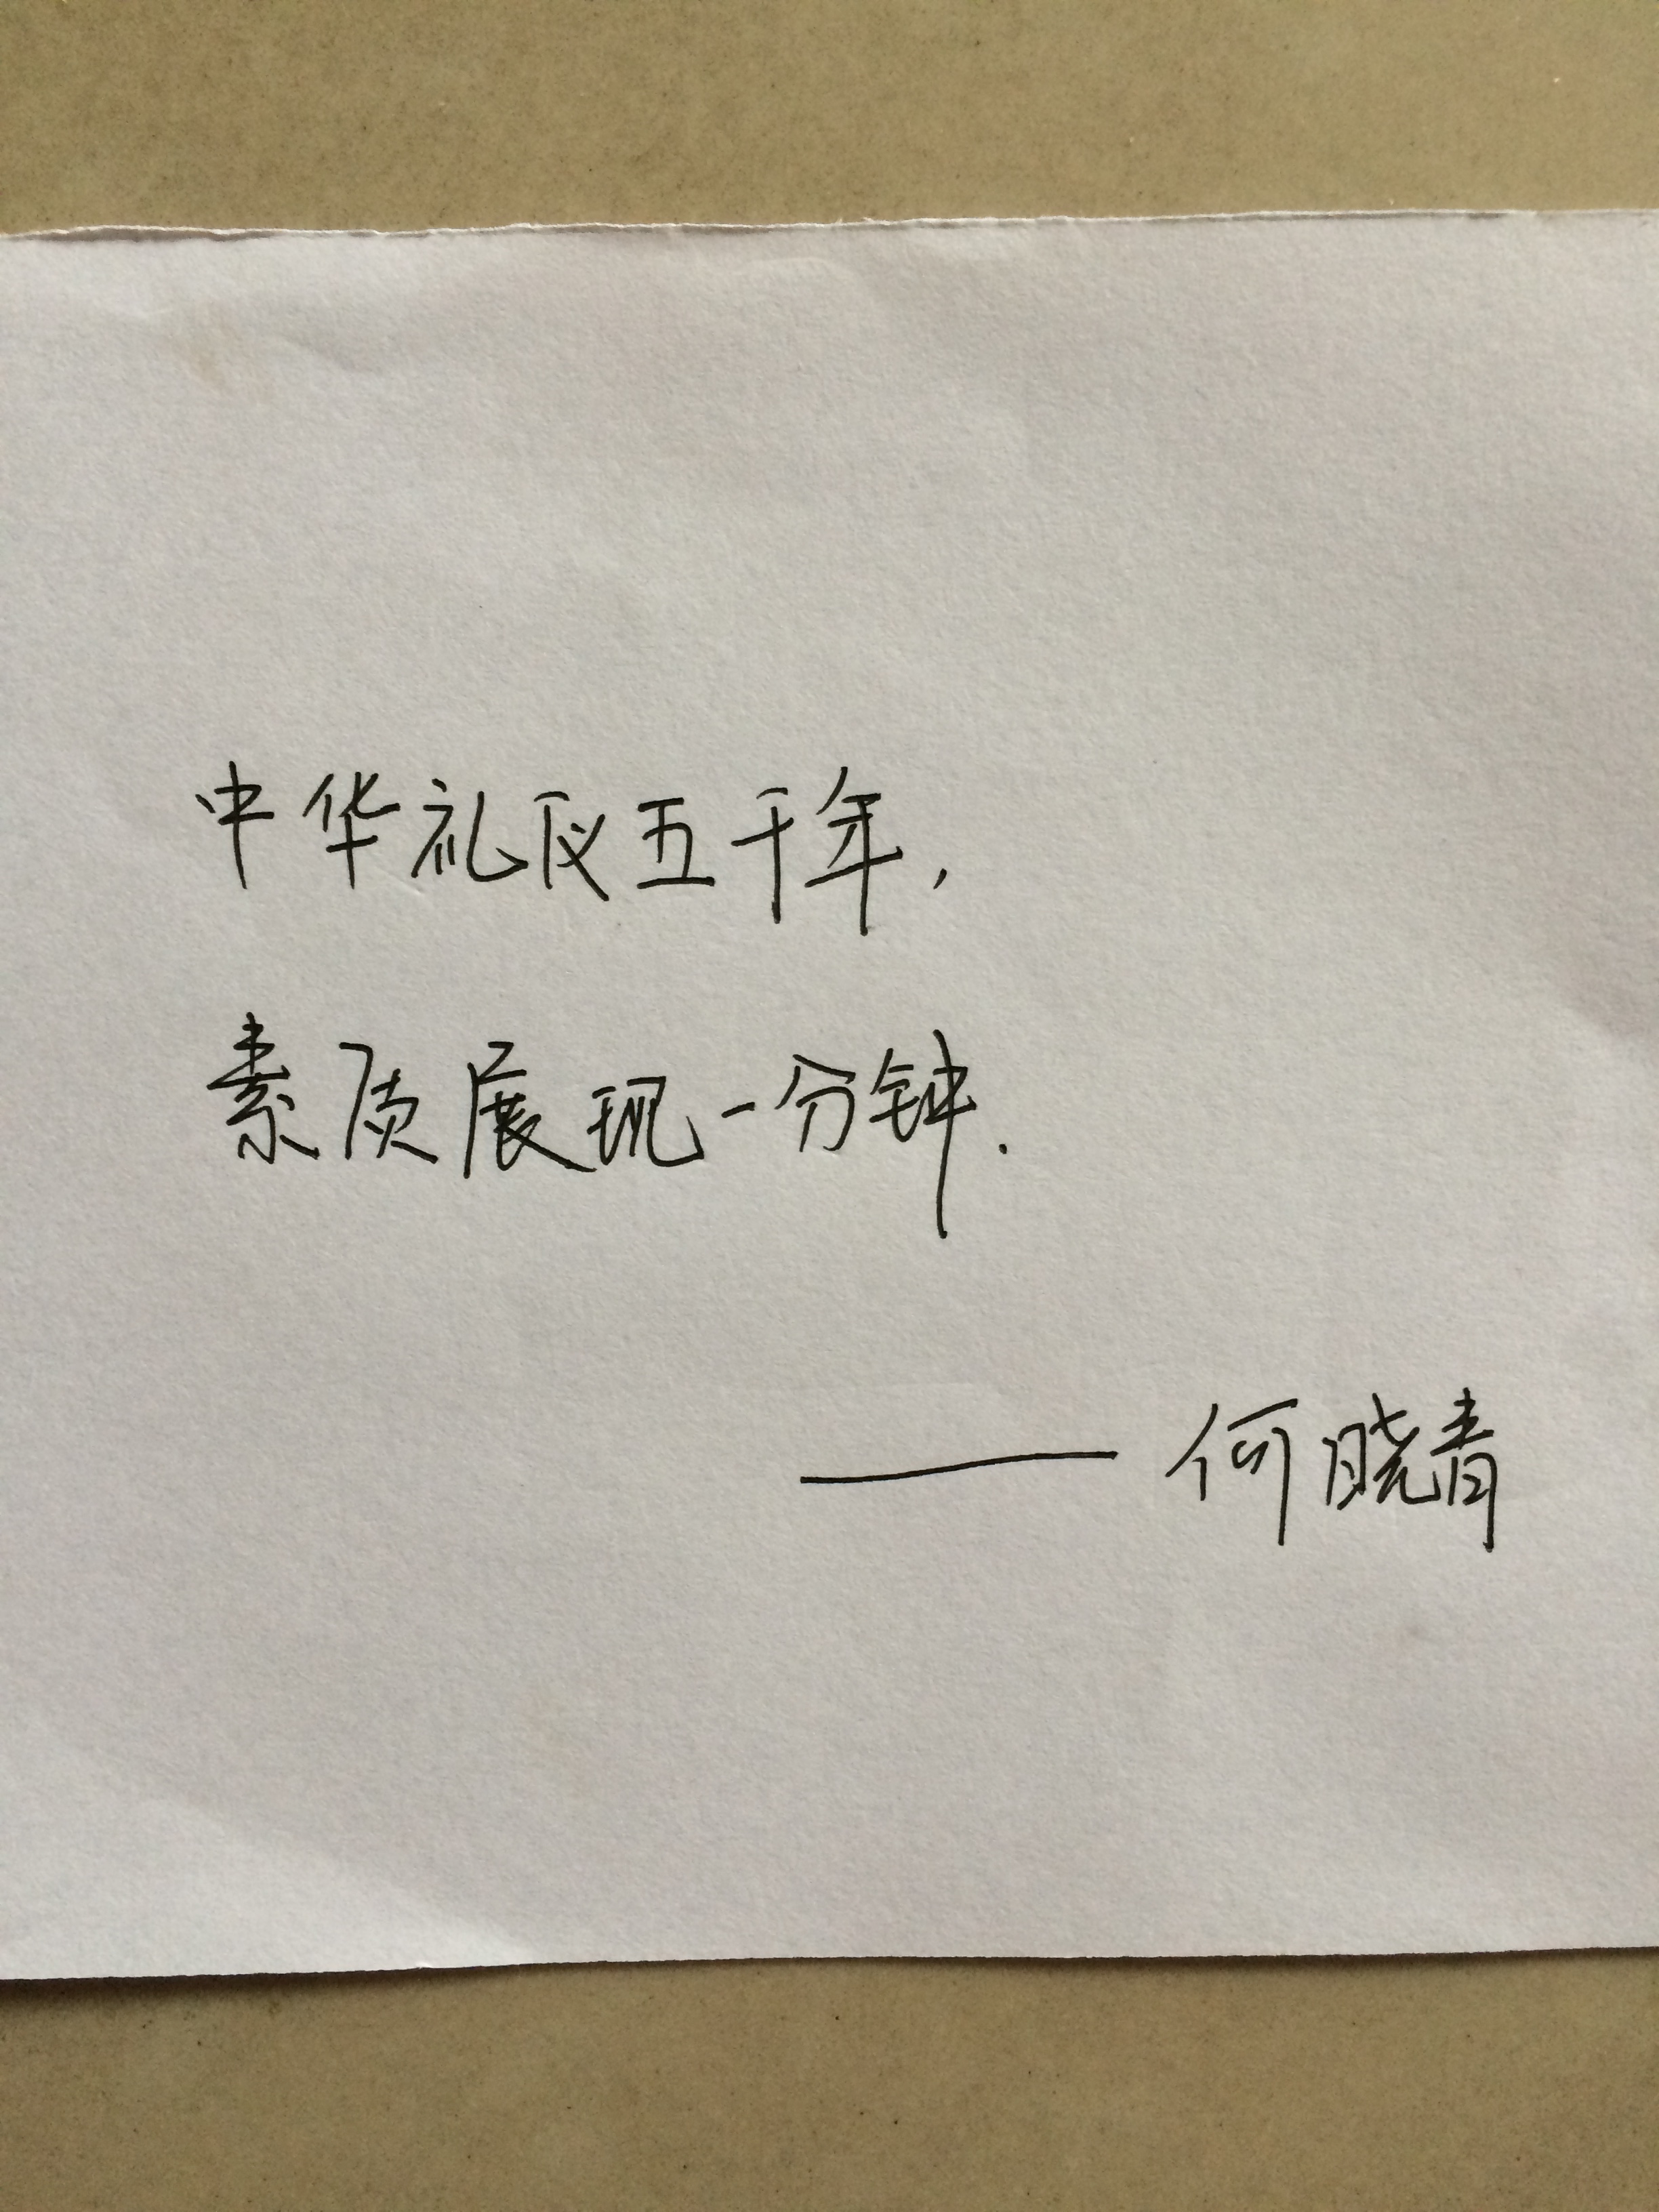 中华礼仪五千年,
素质展现一分钟.
——何晓青